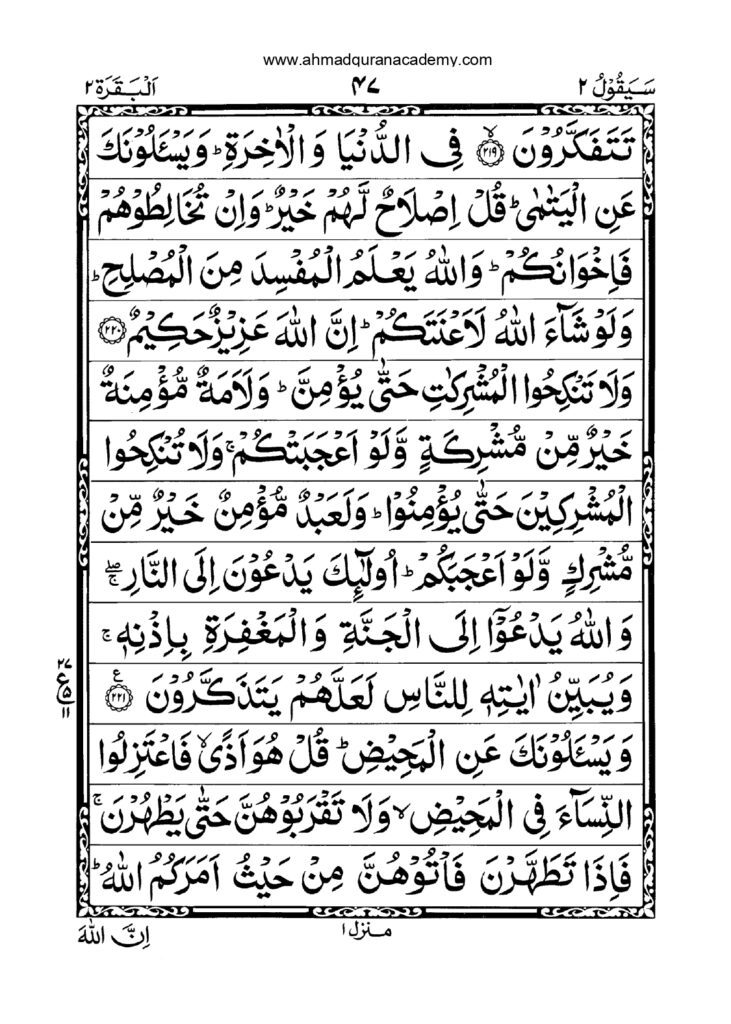 www.ahmadquranacademy.com
سَيَقُوْلُ ٢ ۴۷ اَلْبَقَرَة ٢
تَتَفَكَّرُوْنَ ۙ﴿٢١٩﴾ فِى الدُّنْيَا وَ الْاٰخِرَةِ ؕ وَيَسْـَٔلُوْنَكَ
عَنِ الْيَتٰمٰى ؕ قُلْ اِصْلَاحٌ لَّهُمْ خَيْرٌ ؕ وَاِنْ تُخَالِطُوْهُمْ
فَاِخْوَانُكُمْ ؕ وَاللّٰهُ يَعْلَمُ الْمُفْسِدَ مِنَ الْمُصْلِحِ ؕ
وَلَوْ شَآءَ اللّٰهُ لَاَعْنَتَكُمْ ؕ اِنَّ اللّٰهَ عَزِيْزٌ حَكِيْمٌ ﴿٢٢٠﴾
وَلَا تَنْكِحُوا الْمُشْرِكٰتِ حَتّٰى يُؤْمِنَّ ؕ وَلَاَمَةٌ مُّؤْمِنَةٌ
خَيْرٌ مِّنْ مُّشْرِكَةٍ وَّلَوْ اَعْجَبَتْكُمْ ۚ وَلَا تُنْكِحُوا
الْمُشْرِكِيْنَ حَتّٰى يُؤْمِنُوْا ؕ وَلَعَبْدٌ مُّؤْمِنٌ خَيْرٌ مِّنْ
مُّشْرِكٍ وَّلَوْ اَعْجَبَكُمْ ؕ اُولٰٓئِكَ يَدْعُوْنَ اِلَى النَّارِ ۖۚ
وَاللّٰهُ يَدْعُوْٓا اِلَى الْجَنَّةِ وَالْمَغْفِرَةِ بِاِذْنِهٖ ۚ
وَيُبَيِّنُ اٰيٰتِهٖ لِلنَّاسِ لَعَلَّهُمْ يَتَذَكَّرُوْنَ ﴿٢٢١﴾ ع
٢٧
ع
۵
١١
وَيَسْـَٔلُوْنَكَ عَنِ الْمَحِيْضِ ؕ قُلْ هُوَ اَذًى ۙ فَاعْتَزِلُوا
النِّسَآءَ فِى الْمَحِيْضِ ۙ وَلَا تَقْرَبُوْهُنَّ حَتّٰى يَطْهُرْنَ ۚ
فَاِذَا تَطَهَّرْنَ فَاْتُوْهُنَّ مِنْ حَيْثُ اَمَرَكُمُ اللّٰهُ ؕ
منزل ١
اِنَّ اللّٰهَ